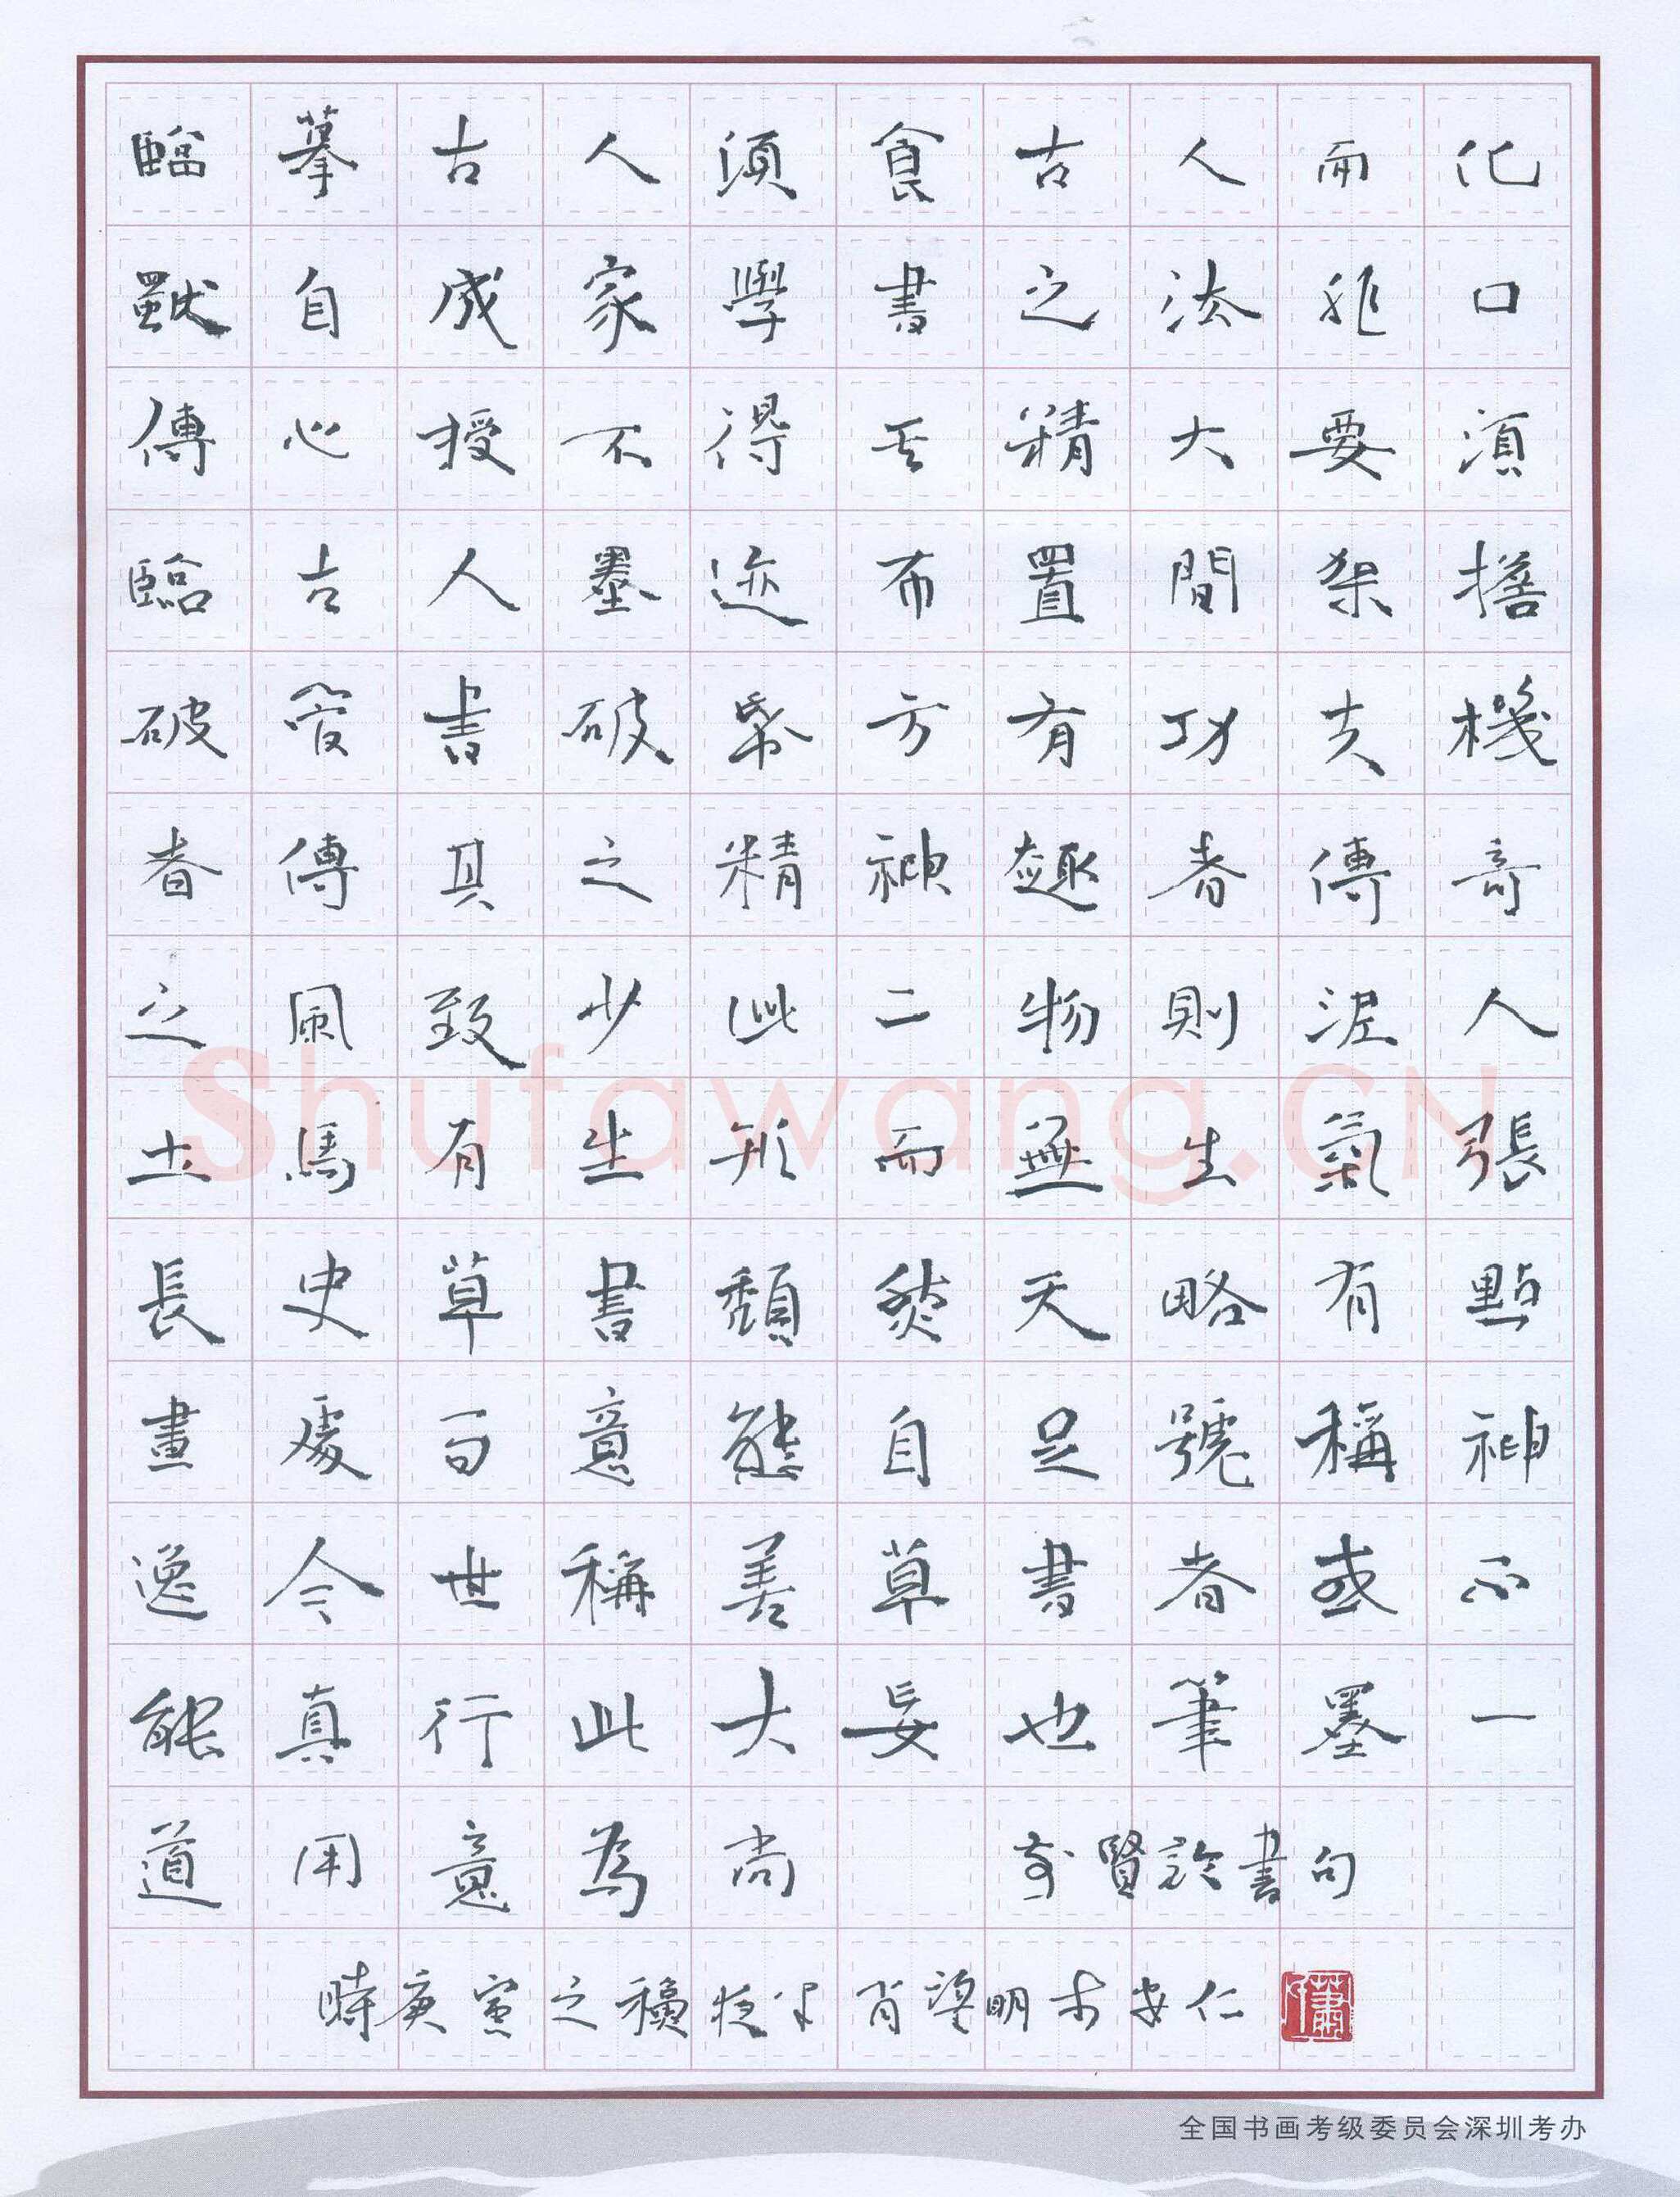 臨摹古人須食古人而化
獨自成家學書之法非口
傳心授不得其精大要須
臨古人墨迹布置間架擔
破管書破紙方有功夫機
者傳其之精神趣者傳奇
之風致少此二物則泥人
土馬有生形而無生氣張
長史草書頹然天略有點
畫處而意態自足號稱神
逸今世稱善草書者或不
能真行此大妄也筆墨一
道用意為尚 前賢論書句
時庚寅之穐夜半肖望明于安仁
Shufawang.CN
全国书画考级委员会深圳考办